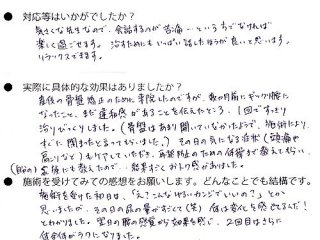 ● 対応等はいかがでしたか？
気さくな先生なので、会話するのが苦痛…というちでなければ
楽しく過ごせます。治すためにもいっぱい話したほうが良いと思います。
リラックスできます。
● 実際に具体的な効果はありましたか？
産後の骨盤矯正のために来院したのですが、数か月前にギックリ腰に
なったこと、まだ違和感があることを伝えたところ、1回ですっきり
治りびっくりしました。（骨盤はあまり開いていなかったようで、施術により、
すぐに閉まったと言ってもらいました。）その日の気になる症状（頭痛や
肩こりなど）もケアしていただき、再発防止のための体操が教えてもらい、
（胸の）　　にも教えたので、結果すぐおしり感がありました。
● 施術を受けてみての感想をお願いします。どんなことでも結構です。
施術を受けた初日は、「え？こんなゆるいカンジでいいの？」とか
思いましたが、その日の尿の量がすごくて（笑）体は変化を感じてるんだ！
とわかりました。翌日の腰の感覚から効果を感じ、2回目はさらに
体全体がラクになりました。